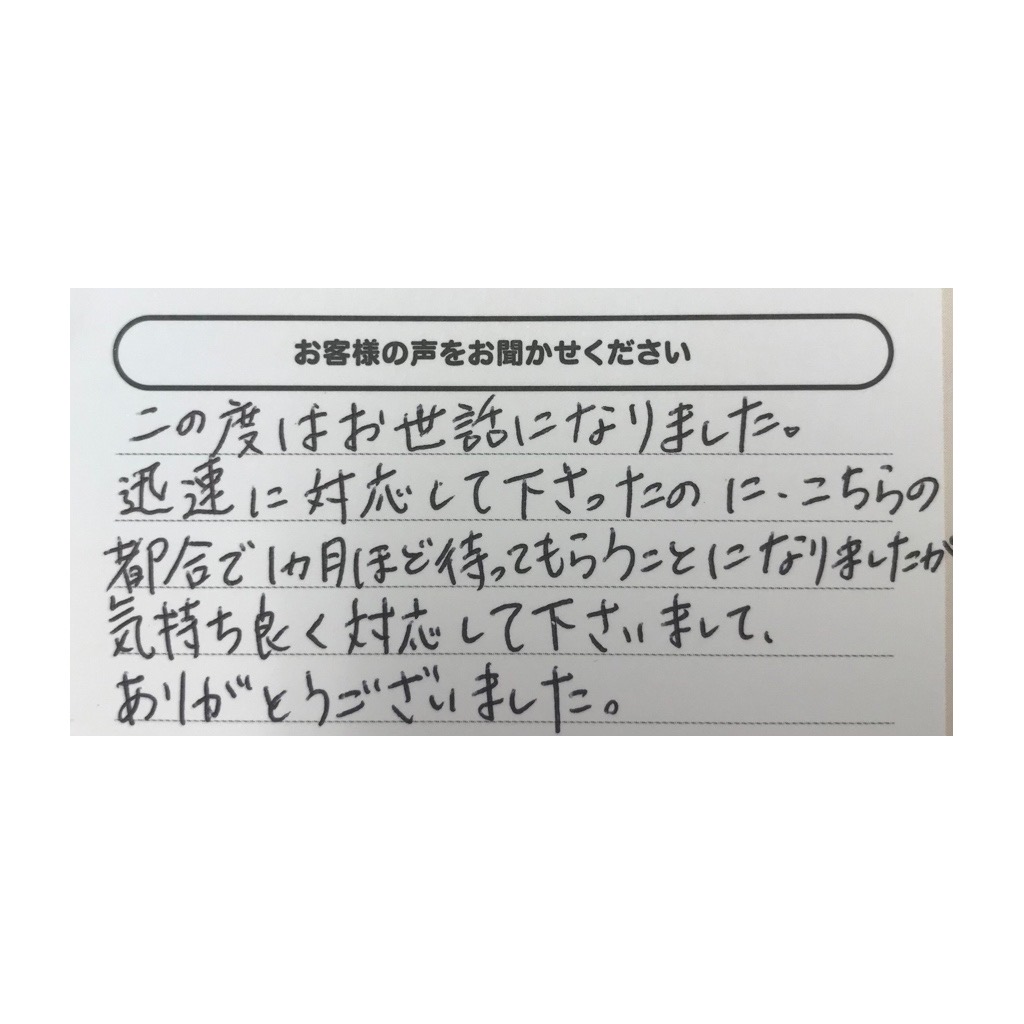 お客様の声をお聞かせください
この度はお世話になりました。
迅速に対応して下さったのに、こちらの
都合で1ヵ月ほど待ってもらうことになりましたが
気持ち良く対応して下さいまして、
ありがとうございました。